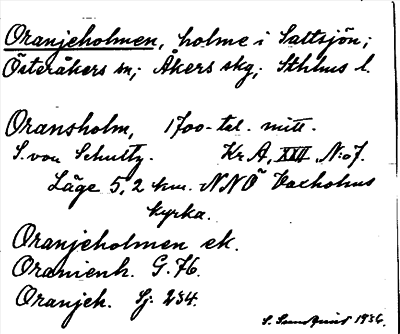 Oranjeholmen, holme i Saltsjön;
Österåkers sn; Åkers skg; Sthlms l.
Oransholm, 1700-tal. mitt.
S. von Schultz. Kr A, XXII, N:o 7.
Läge 5,2 km. NNÖ Vaxholms
kyrka.
Oranjeholmen ek.
Oranienh. G. 76.
Oranjeh. Sj: 234.
S. Sundquist 1936.